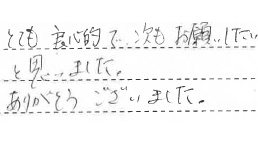 とても良心的で次もお願いしたい
と思いました。
ありがとうございました。